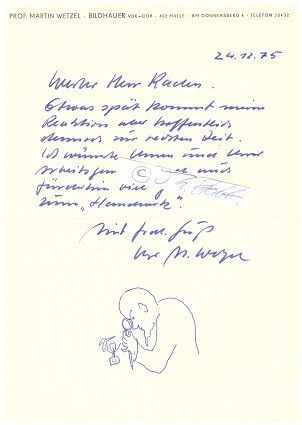 PROF. MARTIN WETZEL · BILDHAUER VBK-DDR · 402 HALLE · AM DONNERSBERG 4 · TELEFON 32432
24.12.75
Werter Herr Raden.
Etwas spät kommt meine
Reaktion aber hoffentlich
dennoch zur rechten Zeit.
Ich wünsche Ihnen und Ihrer
und
viel
zum „Handwerk“.
Mit frdl. Gruß
Ihr M. Wetzel